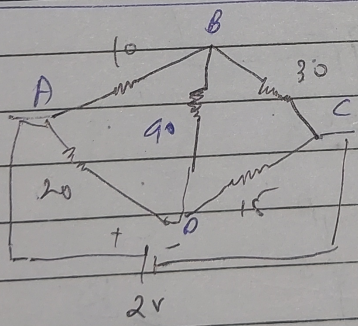 B
10
30
A
C
90
20
15
D
+
-
2v